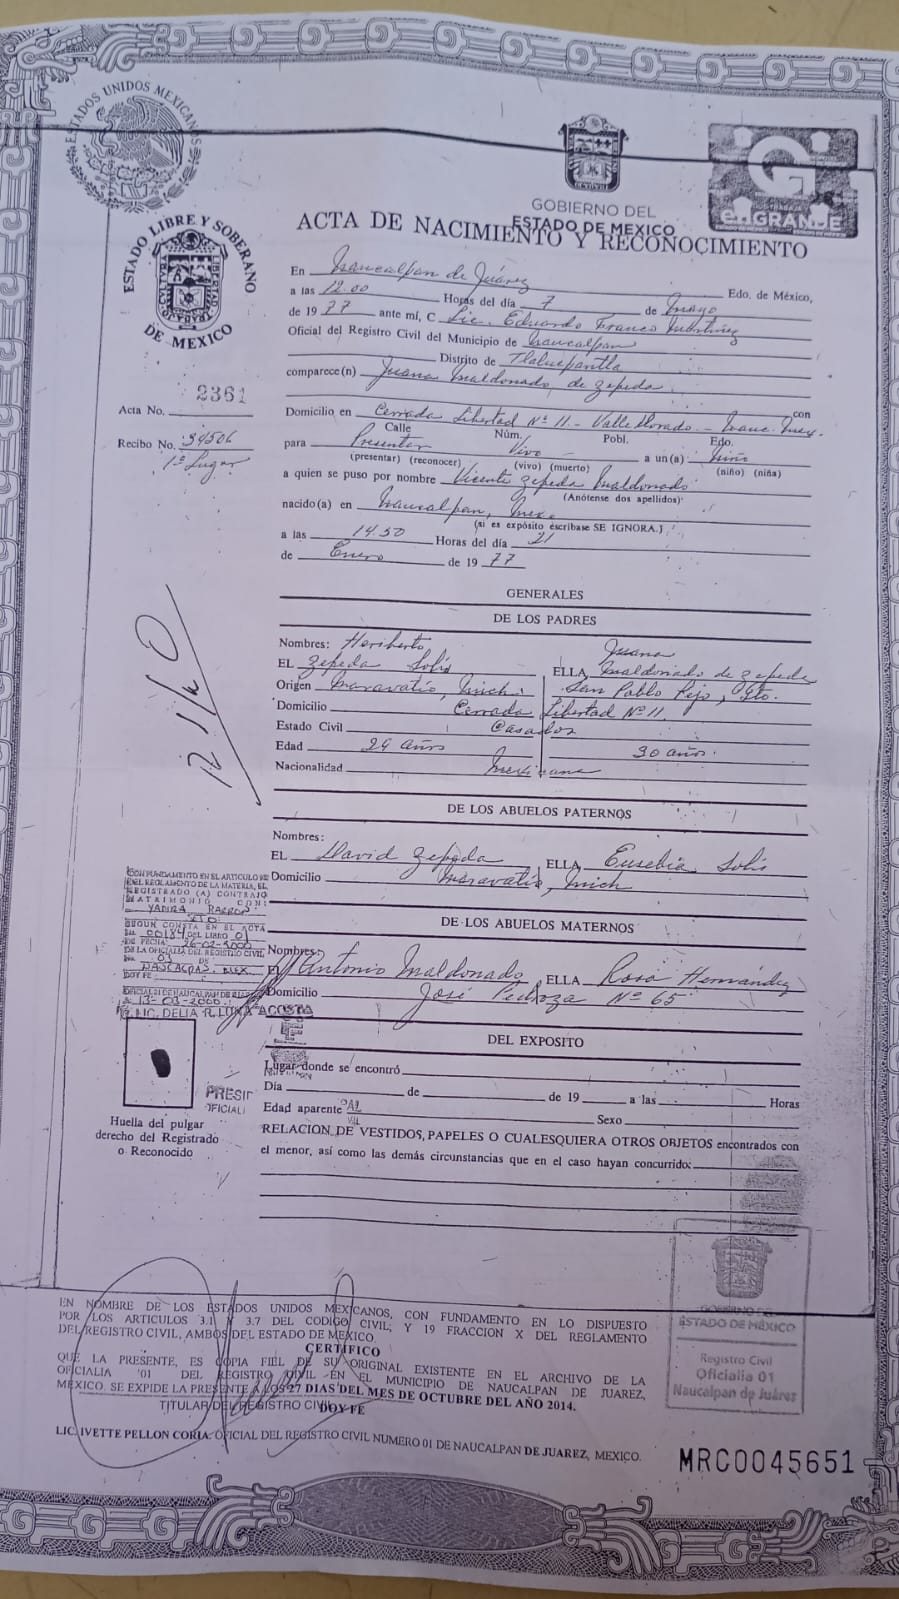 ESTADOS UNIDOS MEXICANOS
GOBIERNO DEL
ESTADO DE MÉXICO
G
enGRANDE
ESTADO LIBRE Y SOBERANO
DE MEXICO
ACTA DE NACIMIENTO Y RECONOCIMIENTO
En Naucalpan de Juárez Edo. de México,
a las 12.00 Horas del día 7 de mayo
de 1977 ante mí, C Lic. Eduardo Franco Martínez
Oficial del Registro Civil del Municipio de Naucalpan
Distrito de Tlalnepantla
comparece(n) Juana Maldonado de Zepeda
2361
Acta No.
con
Domicilio en Cerrada Libertad Nº 11.- Valle Dorado - Nauc. Mex.
Calle Núm. Pobl. Edo.
Recibo No. 34506
1º Lugar
para Presentar Vivo a un(a) Niño
(presentar) (reconocer) (vivo) (muerto) (niño) (niña)
a quien se puso por nombre Vicente Zepeda Maldonado
(Anótense dos apellidos)
nacido(a) en Naucalpan, Mex.
(si es expósito escríbase SE IGNORA.)
a las 14.50 Horas del día 21
de Enero de 1977
GENERALES
DE LOS PADRES
Nombres: Heriberto Juana
EL Zepeda Solís ELLA Maldonado de Zepeda
Origen Maravatío, Mich. San Pablo Pejo, Gto.
Domicilio Cerrada Libertad Nº 11.
Estado Civil Casados
Edad 29 años 30 años.
Nacionalidad Mexicana
DE LOS ABUELOS PATERNOS
Nombres:
EL David Zepeda ELLA Eusebia Solís
Domicilio Maravatío, Mich
DE LOS ABUELOS MATERNOS
Nombres:
El Antonio Maldonado ELLA Rosa Hernández
Domicilio José Pedroza Nº 65
CON FUNDAMENTO EN EL ARTICULO
DEL REGLAMENTO DE LA MATERIA, EL
REGISTRADO (A) CONTRAJO
MATRIMONIO CON:
YADIRA
SEGUN CONSTA EN EL ACTA
No. 00184 DEL LIBRO 01
DE FECHA 26-02-2000
DE LA OFICIALIA DEL REGISTRO CIVIL
No. 01 DE
NAUCALPAN, MEX.
DOY FE
A 13-03-2000
LIC. DELIA R. LUNA ACOSTA
DEL EXPOSITO
Lugar donde se encontró
Día de de 19 a las Horas
Edad aparente Sexo
PRESID
OFICIALI
Huella del pulgar
derecho del Registrado
o Reconocido
RELACION DE VESTIDOS, PAPELES O CUALESQUIERA OTROS OBJETOS encontrados con
el menor, así como las demás circunstancias que en el caso hayan concurrido:
EN NOMBRE DE LOS ESTADOS UNIDOS MEXICANOS, CON FUNDAMENTO EN LO DISPUESTO
POR LOS ARTICULOS 3.1 Y 3.7 DEL CODIGO CIVIL, Y 19 FRACCION X DEL REGLAMENTO
DEL REGISTRO CIVIL, AMBOS DEL ESTADO DE MEXICO.
CERTIFICO
QUE LA PRESENTE, ES COPIA FIEL DE SU ORIGINAL EXISTENTE EN EL ARCHIVO DE LA
OFICIALIA 01 DEL REGISTRO CIVIL EN EL MUNICIPIO DE NAUCALPAN DE JUAREZ,
MEXICO. SE EXPIDE LA PRESENTE A LOS 27 DIAS DEL MES DE OCTUBRE DEL AÑO 2014.
TITULAR DEL REGISTRO CIVIL DOY FE
LIC. IVETTE PELLON CORIA. OFICIAL DEL REGISTRO CIVIL NUMERO 01 DE NAUCALPAN DE JUAREZ, MEXICO.
GOBIERNO DEL
ESTADO DE MÉXICO
Registro Civil
Oficialía 01
Naucalpan de Juárez
MRC0045651